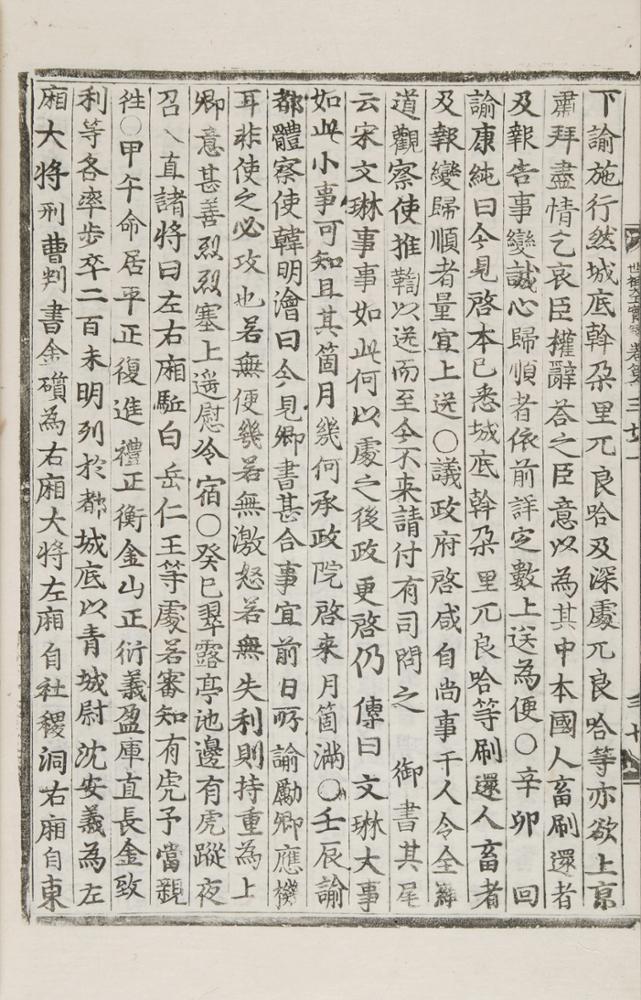 下諭施行然城底幹朶里兀良哈及深處兀良哈等亦欲上京
肅拜盡情乞哀臣權辭荅之臣意以為其中本國人畜刷還者
及報告事變誠心歸順者依前詳定數上送為便○辛卯　回
諭康純曰今見啓本已悉城底幹朶里兀良哈等刷還人畜者
及報變歸順者量宜上送○議政府啓咸自尚事干人令全羅
道觀察使推鞫以送而至今不来請付有司問之　御書其尾
云宋文琳事事如此何以處之後政更啓仍　傳曰文琳大事
如此小事可知且其箇月幾何承政院啓来月箇滿○壬辰諭
都體察使韓明澮曰今見卿書甚合事宜前日所諭勵卿應機
耳非使之必攻也若無便幾若無激怒若無失利則持重為上
卿意甚善烈烈塞上遥慰冷宿○癸巳翠露亭池邊有虎蹤夜
召入直諸將曰左右廂駈白岳仁王等處若審知有虎予當親
徃○甲午命居平正復進禮正衡金山正衍義盈庫直長金致
利等各率步卒二百未明列於都城底以青城尉沈安義為左
廂大將刑曹判書金礩為右廂大將左廂自社稷洞右廂自東